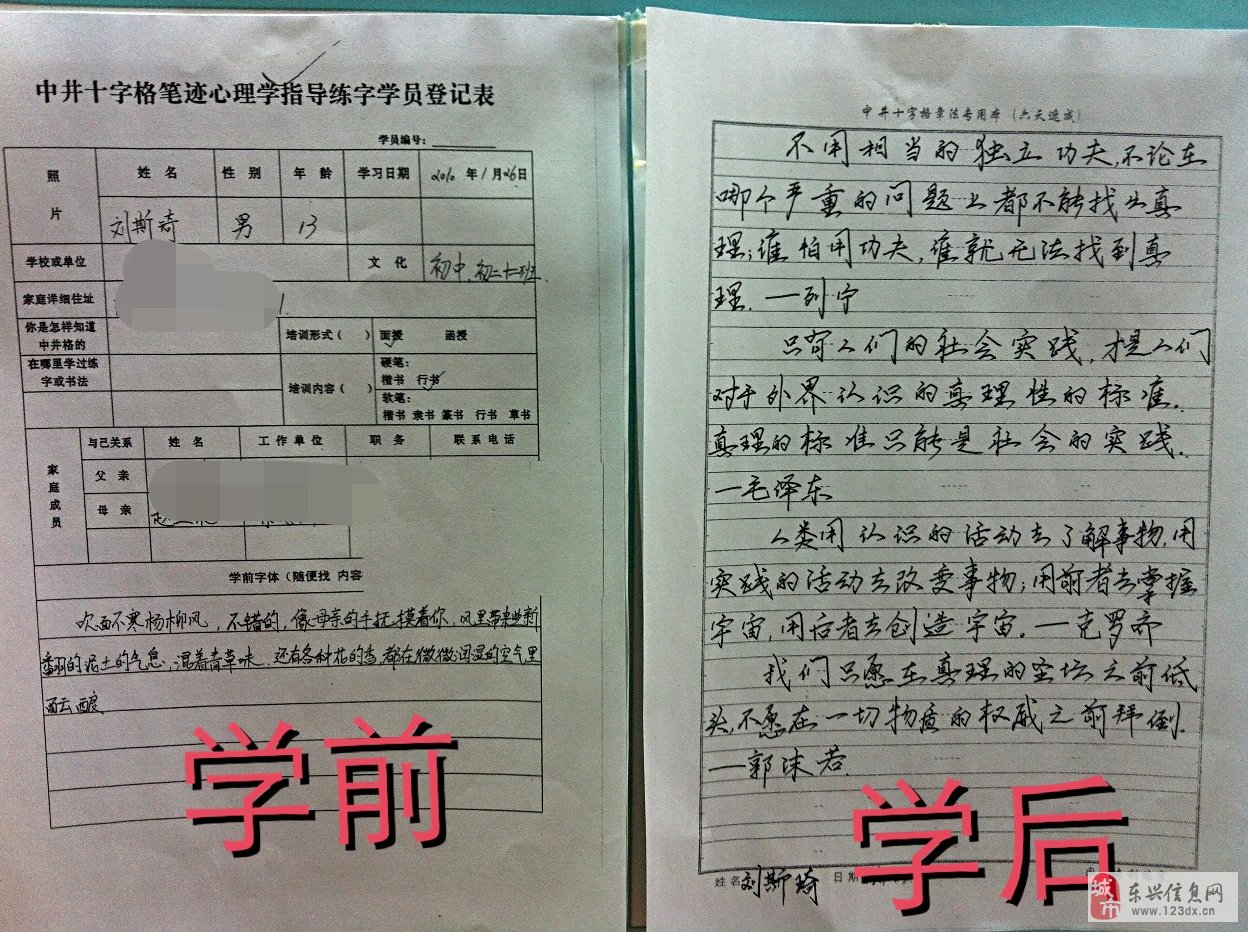 中井十字格笔迹心理学指导练字学员登记表
学员编号:
照片 姓名 性别 年龄 学习日期 2010年1月26日
刘斯琦 男 13
学校或单位 文化 初中,初二十二班
家庭详细住址
你是怎样知道中井格的 培训形式( ) 面授 函授
在哪里学过练字或书法 培训内容( ) 硬笔:
楷书 行书
软笔:
楷书 隶书 篆书 行书 草书
家庭成员 与己关系 姓名 工作单位 职务 联系电话
父亲
母亲
学前字体(随便找 内容
吹面不寒杨柳风,不错的,像母亲的手抚摸着你,风里带来些新
翻的泥土的气息,混着青草味,还有各种花的香,都在微微润湿的空气里
酝酿
学前
中井十字格章法专用本(六天速成)
不用相当的独立功夫,不论在
哪个严重的问题上都不能找出真
理;谁怕用功夫,谁就无法找到真
理.—列宁
只有人们的社会实践,才是人们
对于外界认识的真理性的标准.
真理的标准只能是社会的实践.
—毛泽东
人类用认识的活动去了解事物,用
实践的活动去改变事物;用前者去掌握
宇宙,用后者去创造宇宙.—克罗齐
我们只愿在真理的圣坛之前低
头,不愿在一切物质的权威之前拜倒.
—郭沫若.
学后
姓名 刘斯琦 日期
城市 东兴信息网
www.123dx.cn